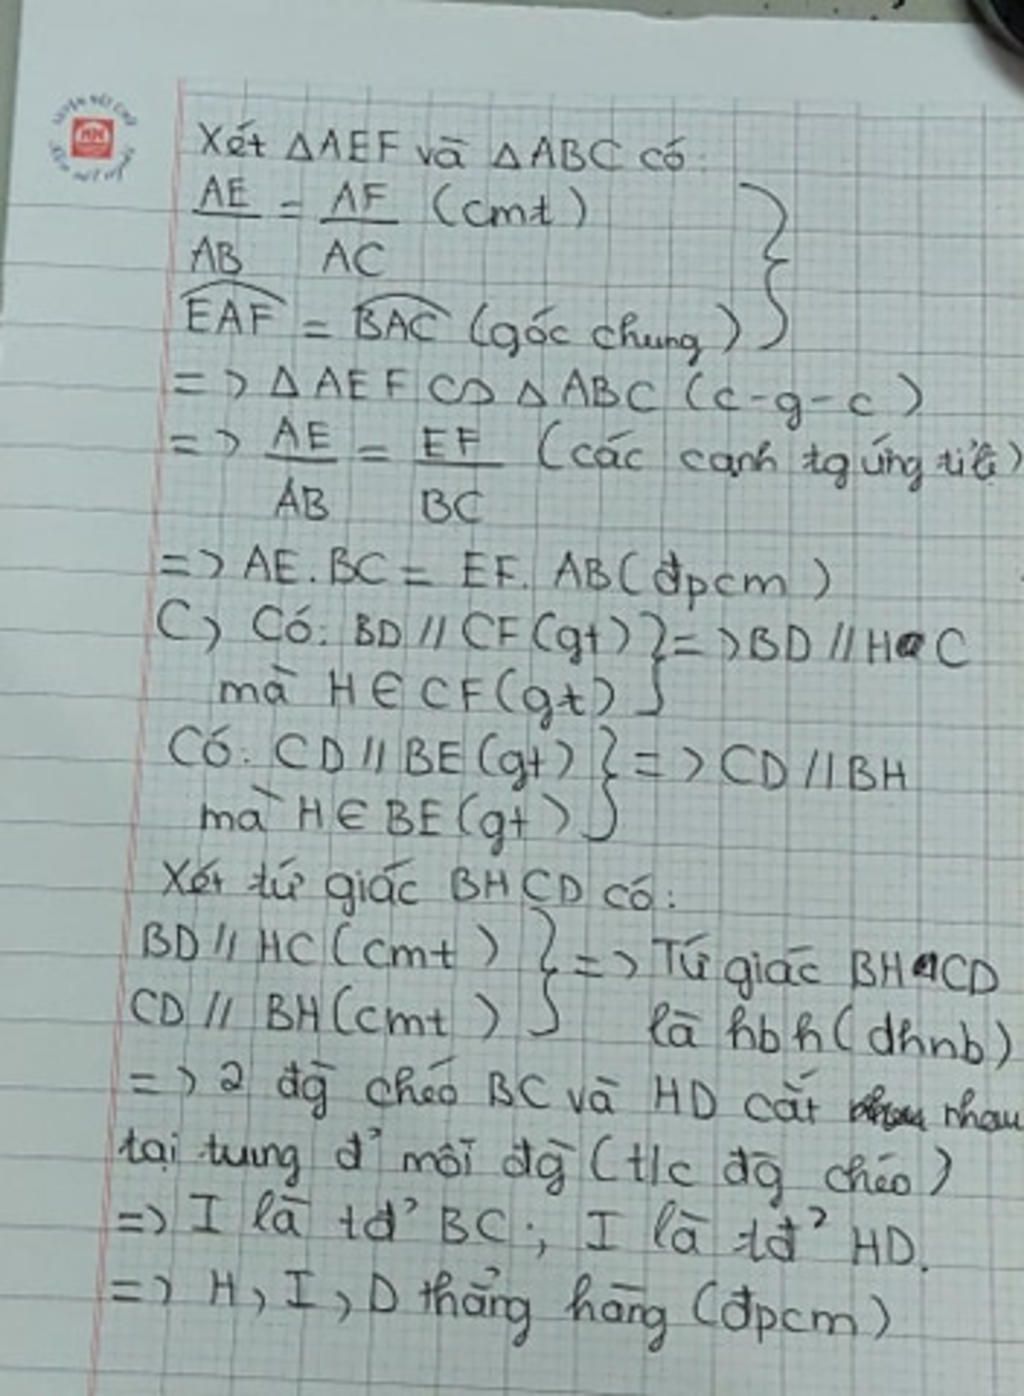 Xét △AEF và △ABC có:
AE/AB = AF/AC (cmt)
EAF = BAC (góc chung)
=> △AEF ∽ △ABC (c-g-c)
=> AE/AB = EF/BC (các cạnh tg ứng tỉ lệ)
=> AE.BC = EF.AB (đpcm)
C) Có: BD // CF (gt) } => BD // HC
mà H ∈ CF (gt)
Có: CD // BE (gt) } => CD // BH
mà H ∈ BE (gt)
Xét tứ giác BHCD có:
BD // HC (cmt) } => Tứ giác BHCD
CD // BH (cmt) là hbh (dhnb)
=> 2 đg chéo BC và HD cắt nhau
tại tung đ' mỗi đg (t/c đg chéo)
=> I là tđ' BC; I là tđ' HD.
=> H, I, D thẳng hàng (đpcm)